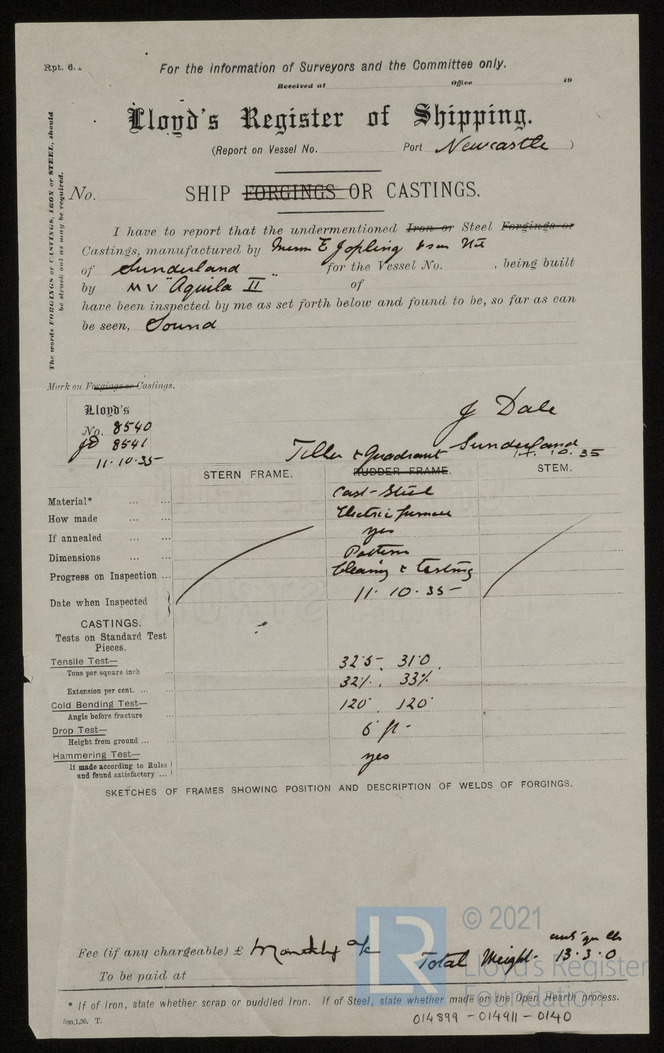 Rpt. 6.
For the information of Surveyors and the Committee only.
Received at Office 19
Lloyd's Register of Shipping.
(Report on Vessel No. Port Newcastle )
No. SHIP FORGINGS OR CASTINGS.
The words FORGINGS or CASTINGS, IRON or STEEL, should
be struck out as may be required.
I have to report that the undermentioned Iron or Steel Forgings or
Castings, manufactured by Messrs E Jopling & Sons Ltd
of Sunderland for the Vessel No. , being built
by MV "Aquila II of
have been inspected by me as set forth below and found to be, so far as can
be seen, Sound
Mark on Forgings or Castings.
Lloyd's
No. 8540
JD 8541
11·10·35
J Dale
Sunderland
10.35
Tiller & Quadrant
STERN FRAME. RUDDER FRAME. STEM.
Material* Cast-Steel
How made Electric furnace
If annealed yes
Dimensions Pattern
Progress on Inspection Cleaning & Testing
Date when Inspected 11·10·35
CASTINGS.
Tests on Standard Test
Pieces.
Tensile Test— 32·5 31·0
Tons per square inch
Extension per cent. 32% 33%
Cold Bending Test— 120° 120°
Angle before fracture
Drop Test— 6 ft
Height from ground
Hammering Test— yes
If made according to Rules
and found satisfactory
SKETCHES OF FRAMES SHOWING POSITION AND DESCRIPTION OF WELDS OF FORGINGS.
© 2021
LR
Lloyd's Register
Foundation
Fee (if any chargeable) £ Monthly a/c Total Weight- 13·3·0
cwts qr lbs
To be paid at
* If of Iron, state whether scrap or puddled Iron. If of Steel, state whether made on the Open Hearth process.
T.
014899-014911-0140